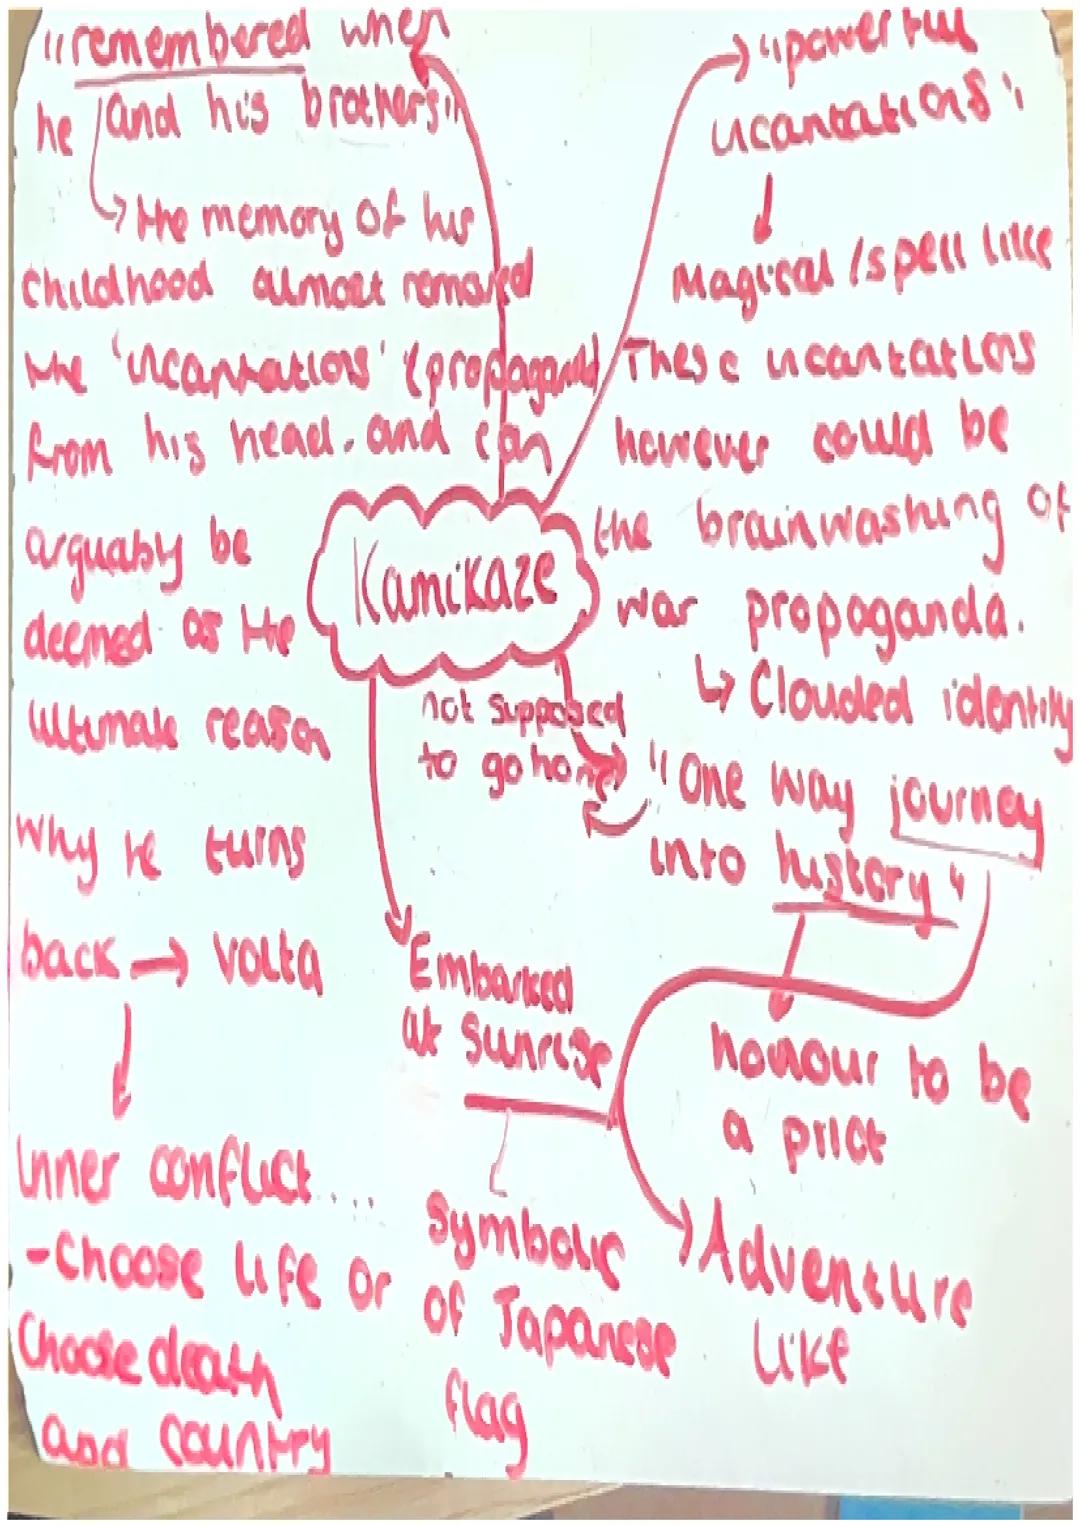 "remembered when
he and his brothers"
the memory of his
childhood almost removed
the 'incantations' (propaganda)
from his head. and can
arguably be
deemed as the
ultimate reason
why he turns
back → volta
Inner conflict....
- Choose life or
Choose death
and country
"powerful
incantations"
Magical / spell like
These incantations
however could be
the brainwashing of
war propaganda.
↳ Clouded identity
Kamikaze
not supposed
to go home
"One way journey
into history"
honour to be
a pilot
Adventure
like
Embarked
at sunrise
symbolic
of Japanese
flag